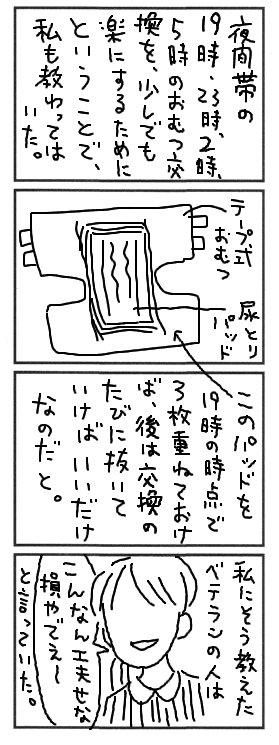 夜間帯の
19時、23時、2時、
5時のおむつ交
換を、少しでも
楽にするために
ということで、
私も教わっては
いた。
テープ式
おむつ
尿とり
パッド
このパッドを
19時の時点で
3枚重ねておけ
ば、後は交換の
たびに抜いて
いけばいいだけ
なのだと。
私にそう教えた
ベテランの人は
こんなん工夫せな
損やでえ〜
と言っていた。